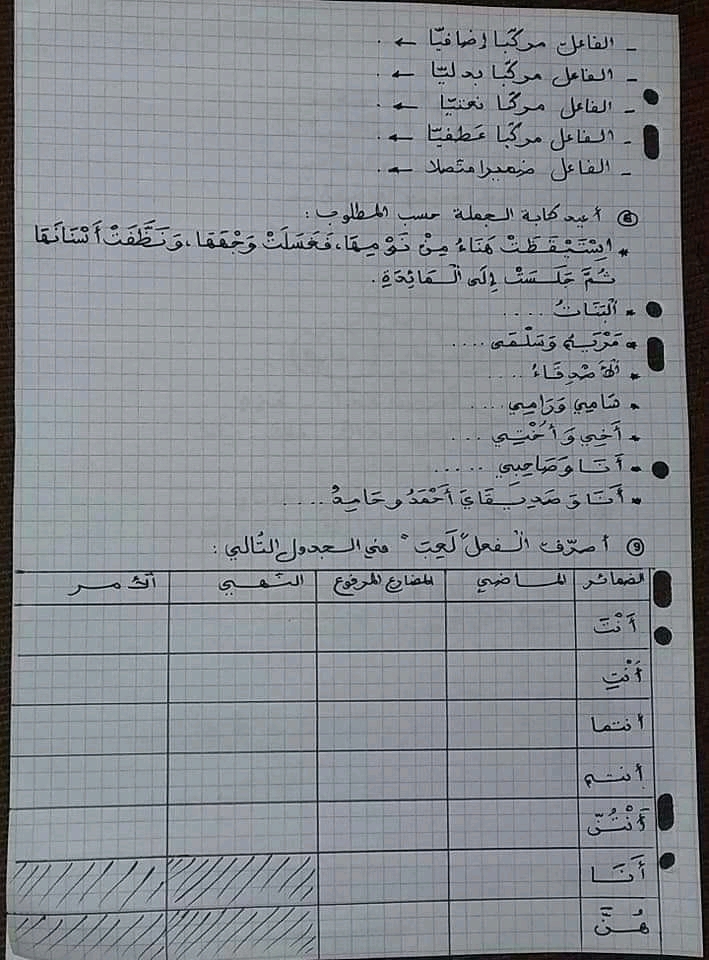 - الفاعل مركّبا إضافيّا ← .
- الفاعل مركّبا بدليّا ← .
- الفاعل مركّبا نعتيّا ← .
- الفاعل مركّبا عطفيّا ← .
- الفاعل ضميرا متّصلا ← .
⑧ أعيد كتابة الجملة حسب المطلوب :
* اِسْتَيْقَظَتْ هَنَاءُ مِنْ نَوْمِهَا، فَغَسَلَتْ وَجْهَهَا، وَنَظَّفَتْ أَسْنَانَهَا
ثُمَّ جَلَسَتْ إِلَى الْمَائِدَةِ.
* الْبَنَاتُ ....
* مَرْيَمُ وَسَلْمَى ....
* الْأَصْدِقَاءُ ....
* سَامِي وَرَامِي ....
* أَخِي وَ أُخْتِي ...
* أَنَا وَ صَاحِبِي .....
* أَنَا وَ صَدِيقَايَ أَحْمَدُ و حَامِدُ ....
⑨ أصرّف الْفعل "لَعِبَ" في الجدول التّالي :
الضمائر الماضي المضارع المرفوع النّهي الأمر
أَنْتَ
أَنْتِ
أنتما
أنتم
أَنْتُنَّ
أَنَا
هُنَّ